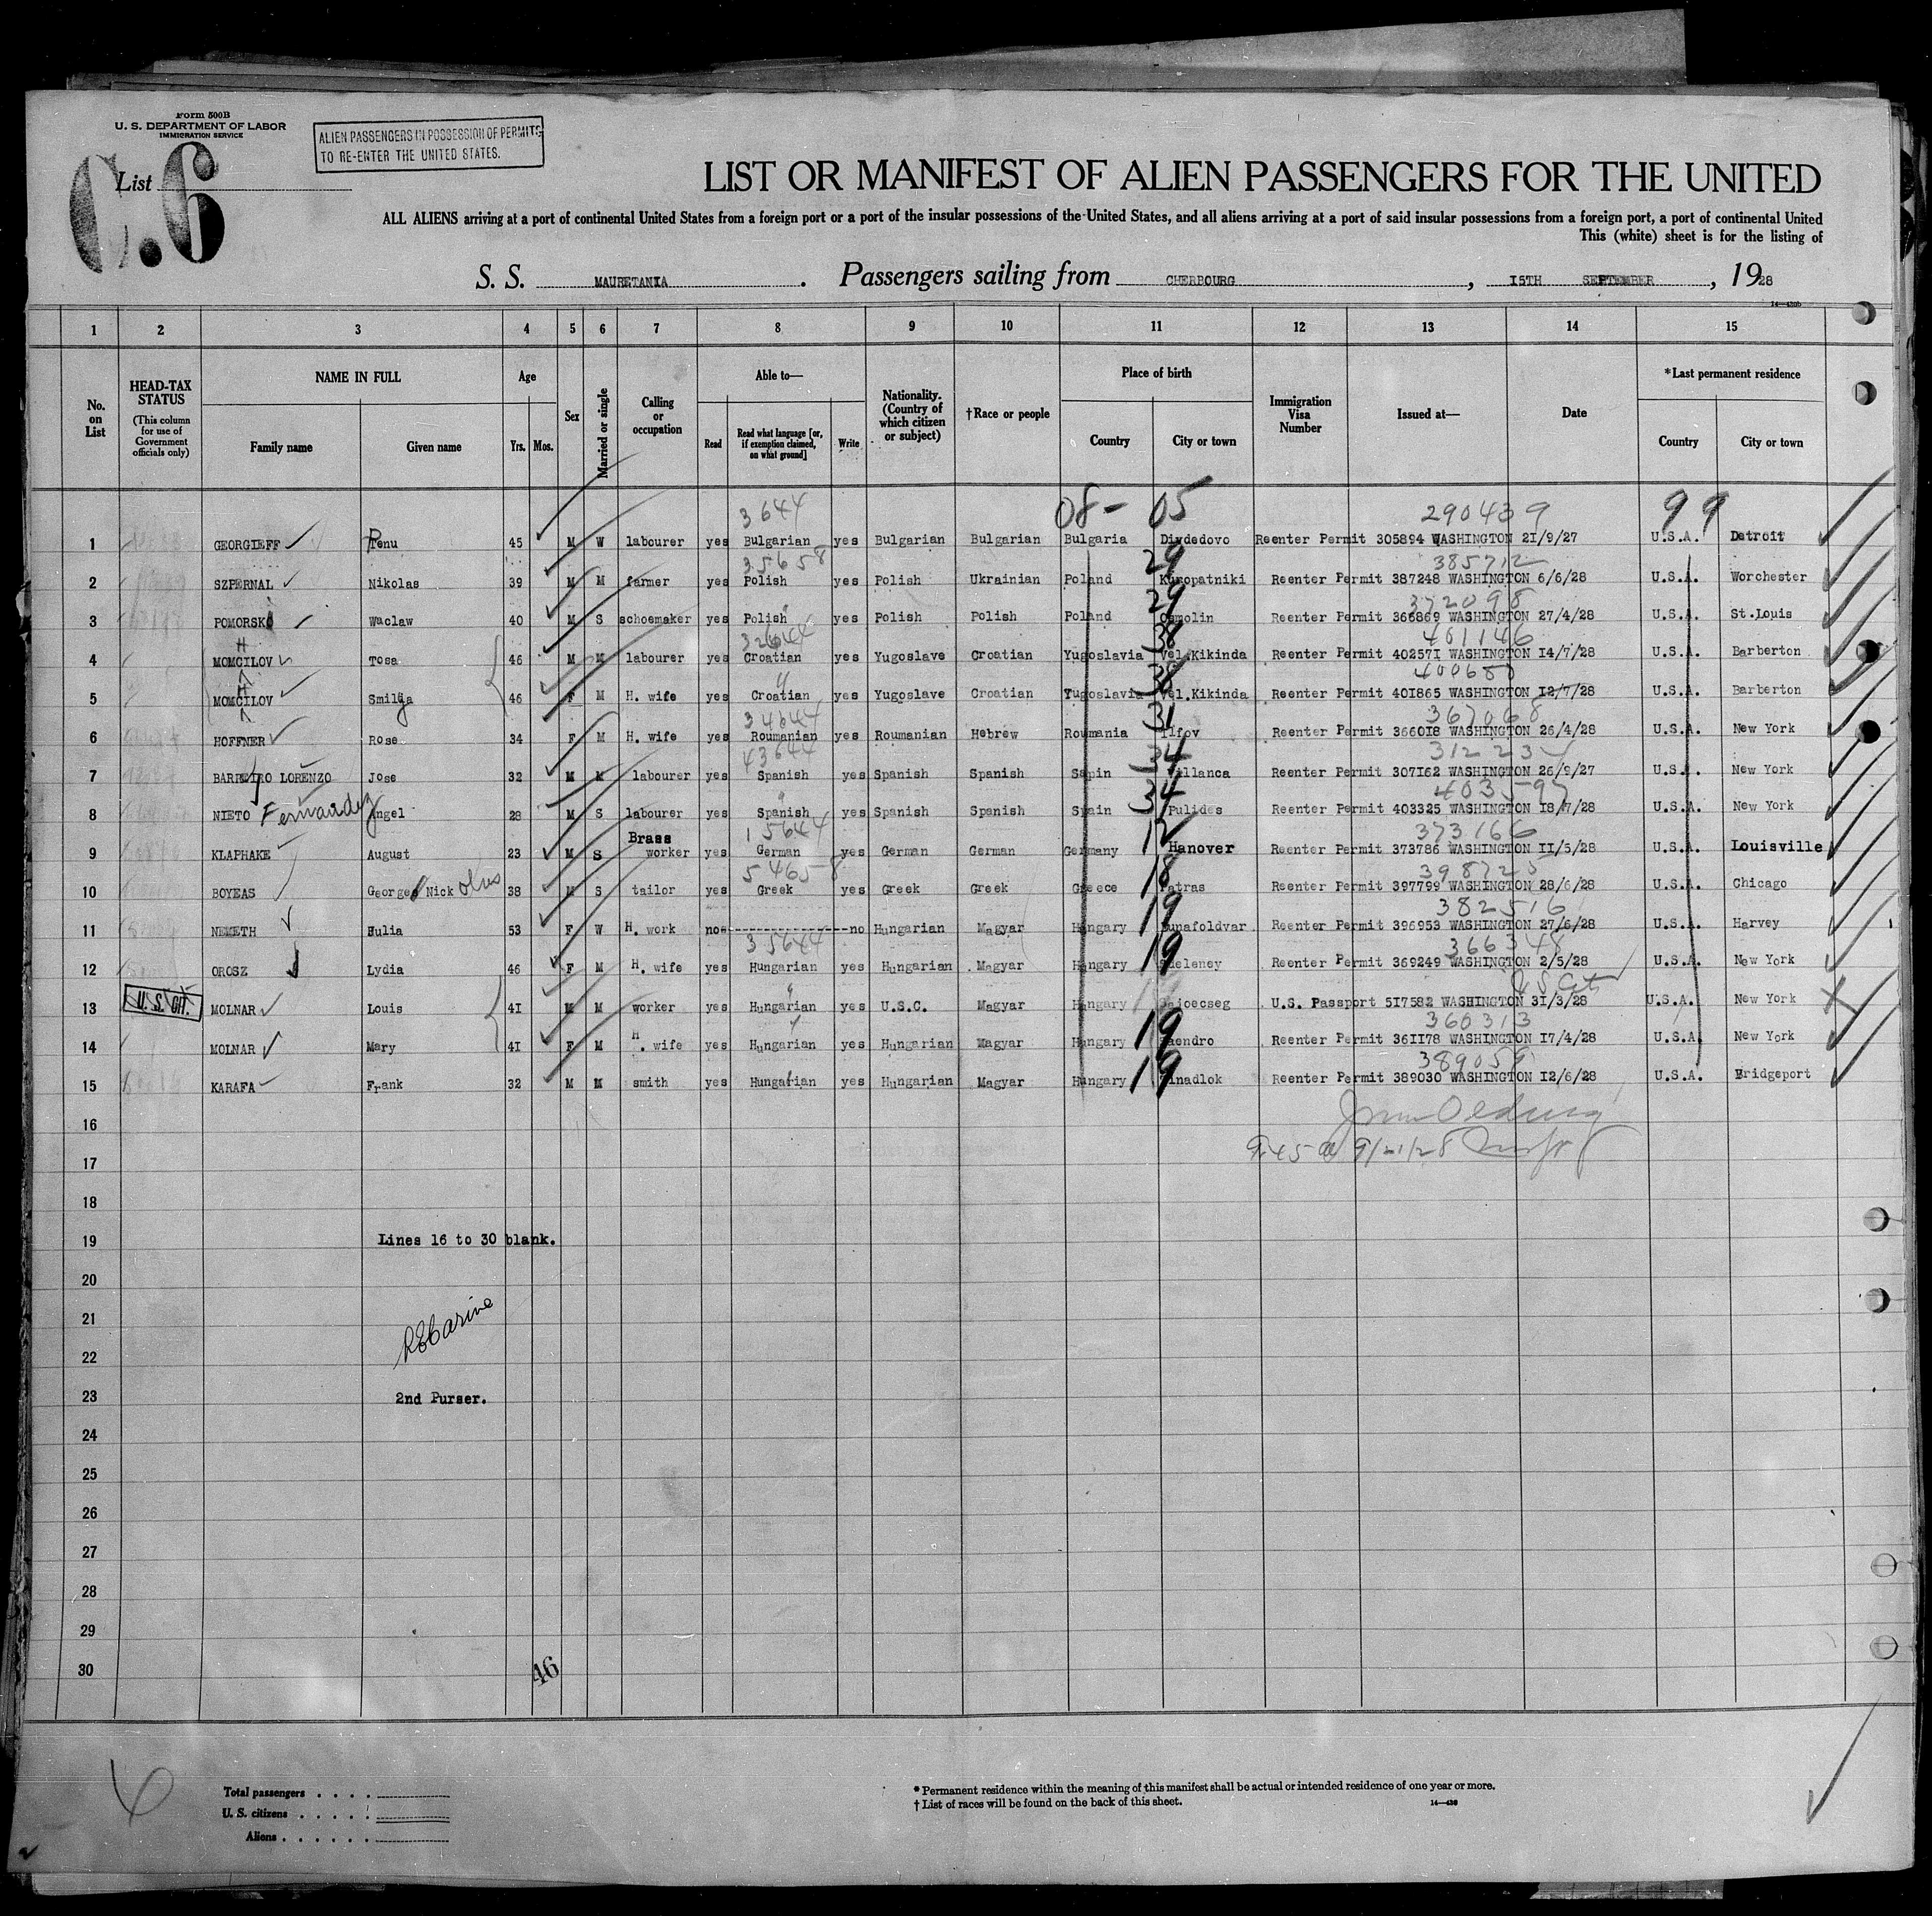 Form 500B
U. S. DEPARTMENT OF LABOR
IMMIGRATION SERVICE
ALIEN PASSENGERS IN POSSESSION OF PERMITS
TO RE-ENTER THE UNITED STATES.
List
C.6
LIST OR MANIFEST OF ALIEN PASSENGERS FOR THE UNITED
ALL ALIENS arriving at a port of continental United States from a foreign port or a port of the insular possessions of the United States, and all aliens arriving at a port of said insular possessions from a foreign port, a port of continental United
This (white) sheet is for the listing of
S. S. MAURETANIA. Passengers sailing from CHERBOURG, 15TH SEPTEMBER, 1928
1 2 3 4 5 6 7 8 9 10 11 12 13 14 15
No. on List
HEAD-TAX STATUS (This column for use of Government officials only)
NAME IN FULL Family name Given name
Age Yrs. Mos.
Sex
Married or single
Calling or occupation
Able to— Read Read what language [or, if exemption claimed, on what ground] Write
Nationality. (Country of which citizen or subject)
†Race or people
Place of birth Country City or town
Immigration Visa Number
Issued at—
Date
*Last permanent residence Country City or town
3644 08- 05 290439 99
1 GEORGIEFF Penu 45 M W labourer yes Bulgarian yes Bulgarian Bulgarian Bulgaria Divdedovo Reenter Permit 305894 WASHINGTON 21/9/27 U.S.A. Detroit
35658 29 385712
2 SZPERNAL Nikolas 39 M M farmer yes Polish yes Polish Ukrainian Poland Kuropatniki Reenter Permit 387248 WASHINGTON 6/6/28 U.S.A. Worchester
29
3 POMORSK Waclaw 40 M S schoemaker yes Polish yes Polish Polish Poland Reenter Permit 366869 WASHINGTON 27/4/28 U.S.A. St.Louis
H 38 401146
4 MOMCILOV Tosa 46 M M labourer yes Croatian yes Yugoslave Croatian Yugoslavia Vel.Kikinda Reenter Permit 402571 WASHINGTON 14/7/28 U.S.A. Barberton
H 38 400680
5 MOMCILOV Smilja 46 F M H. wife yes Croatian yes Yugoslave Croatian Yugoslavia Vel.Kikinda Reenter Permit 401865 WASHINGTON 12/7/28 U.S.A. Barberton
34644 31 367068
6 HOFFNER Rose 34 F M H. wife yes Roumanian yes Roumanian Hebrew Roumania Ilfov Reenter Permit 366018 WASHINGTON 26/4/28 U.S.A. New York
43644 34
7 BARREIRO LORENZO Jose 32 M M labourer yes Spanish yes Spanish Spanish Sapin Reenter Permit 307162 WASHINGTON 26/9/27 U.S.A. New York
34 403597
8 NIETO Fernandez Angel 28 M S labourer yes Spanish yes Spanish Spanish Spain Pulides Reenter Permit 403325 WASHINGTON 18/7/28 U.S.A. New York
15644 12 373166
9 KLAPHAKE August 23 M S Brass worker yes German yes German German Germany Hanover Reenter Permit 373786 WASHINGTON 11/5/28 U.S.A. Louisville
54658 18 398725
10 BOYEAS George Nick olus 38 M S tailor yes Greek yes Greek Greek Greece Patras Reenter Permit 397799 WASHINGTON 28/6/28 U.S.A. Chicago
19 382516
11 NEMETH Julia 53 F W H. work no ---------- no Hungarian Magyar Hungary Dunafoldvar Reenter Permit 396953 WASHINGTON 27/6/28 U.S.A. Harvey
35644 19 366348
12 OROSZ Lydia 46 F M H. wife yes Hungarian yes Hungarian Magyar Hungary Reenter Permit 369249 WASHINGTON 2/5/28 U.S.A. New York
13 U.S. CIT. MOLNAR Louis 41 M M worker yes Hungarian yes U.S.C. Magyar Hungary U.S. Passport 517582 WASHINGTON 31/3/28 U.S.A. New York
19 360313
14 MOLNAR Mary 41 F M H. wife yes Hungarian yes Hungarian Magyar Hungary Reenter Permit 361178 WASHINGTON 17/4/28 U.S.A. New York
19 389059
15 KARAFA Frank 32 M M smith yes Hungarian yes Hungarian Magyar Hungary Reenter Permit 389030 WASHINGTON 12/6/28 U.S.A. Bridgeport
16
9.45 a 9/21/28
17
18
19 Lines 16 to 30 blank.
20
21
22
23 2nd Purser.
24
25
26
27
28
29
30
46
6
Total passengers . . . .
U. S. citizens . . . . .
Aliens . . . . . .
* Permanent residence within the meaning of this manifest shall be actual or intended residence of one year or more.
† List of races will be found on the back of this sheet.